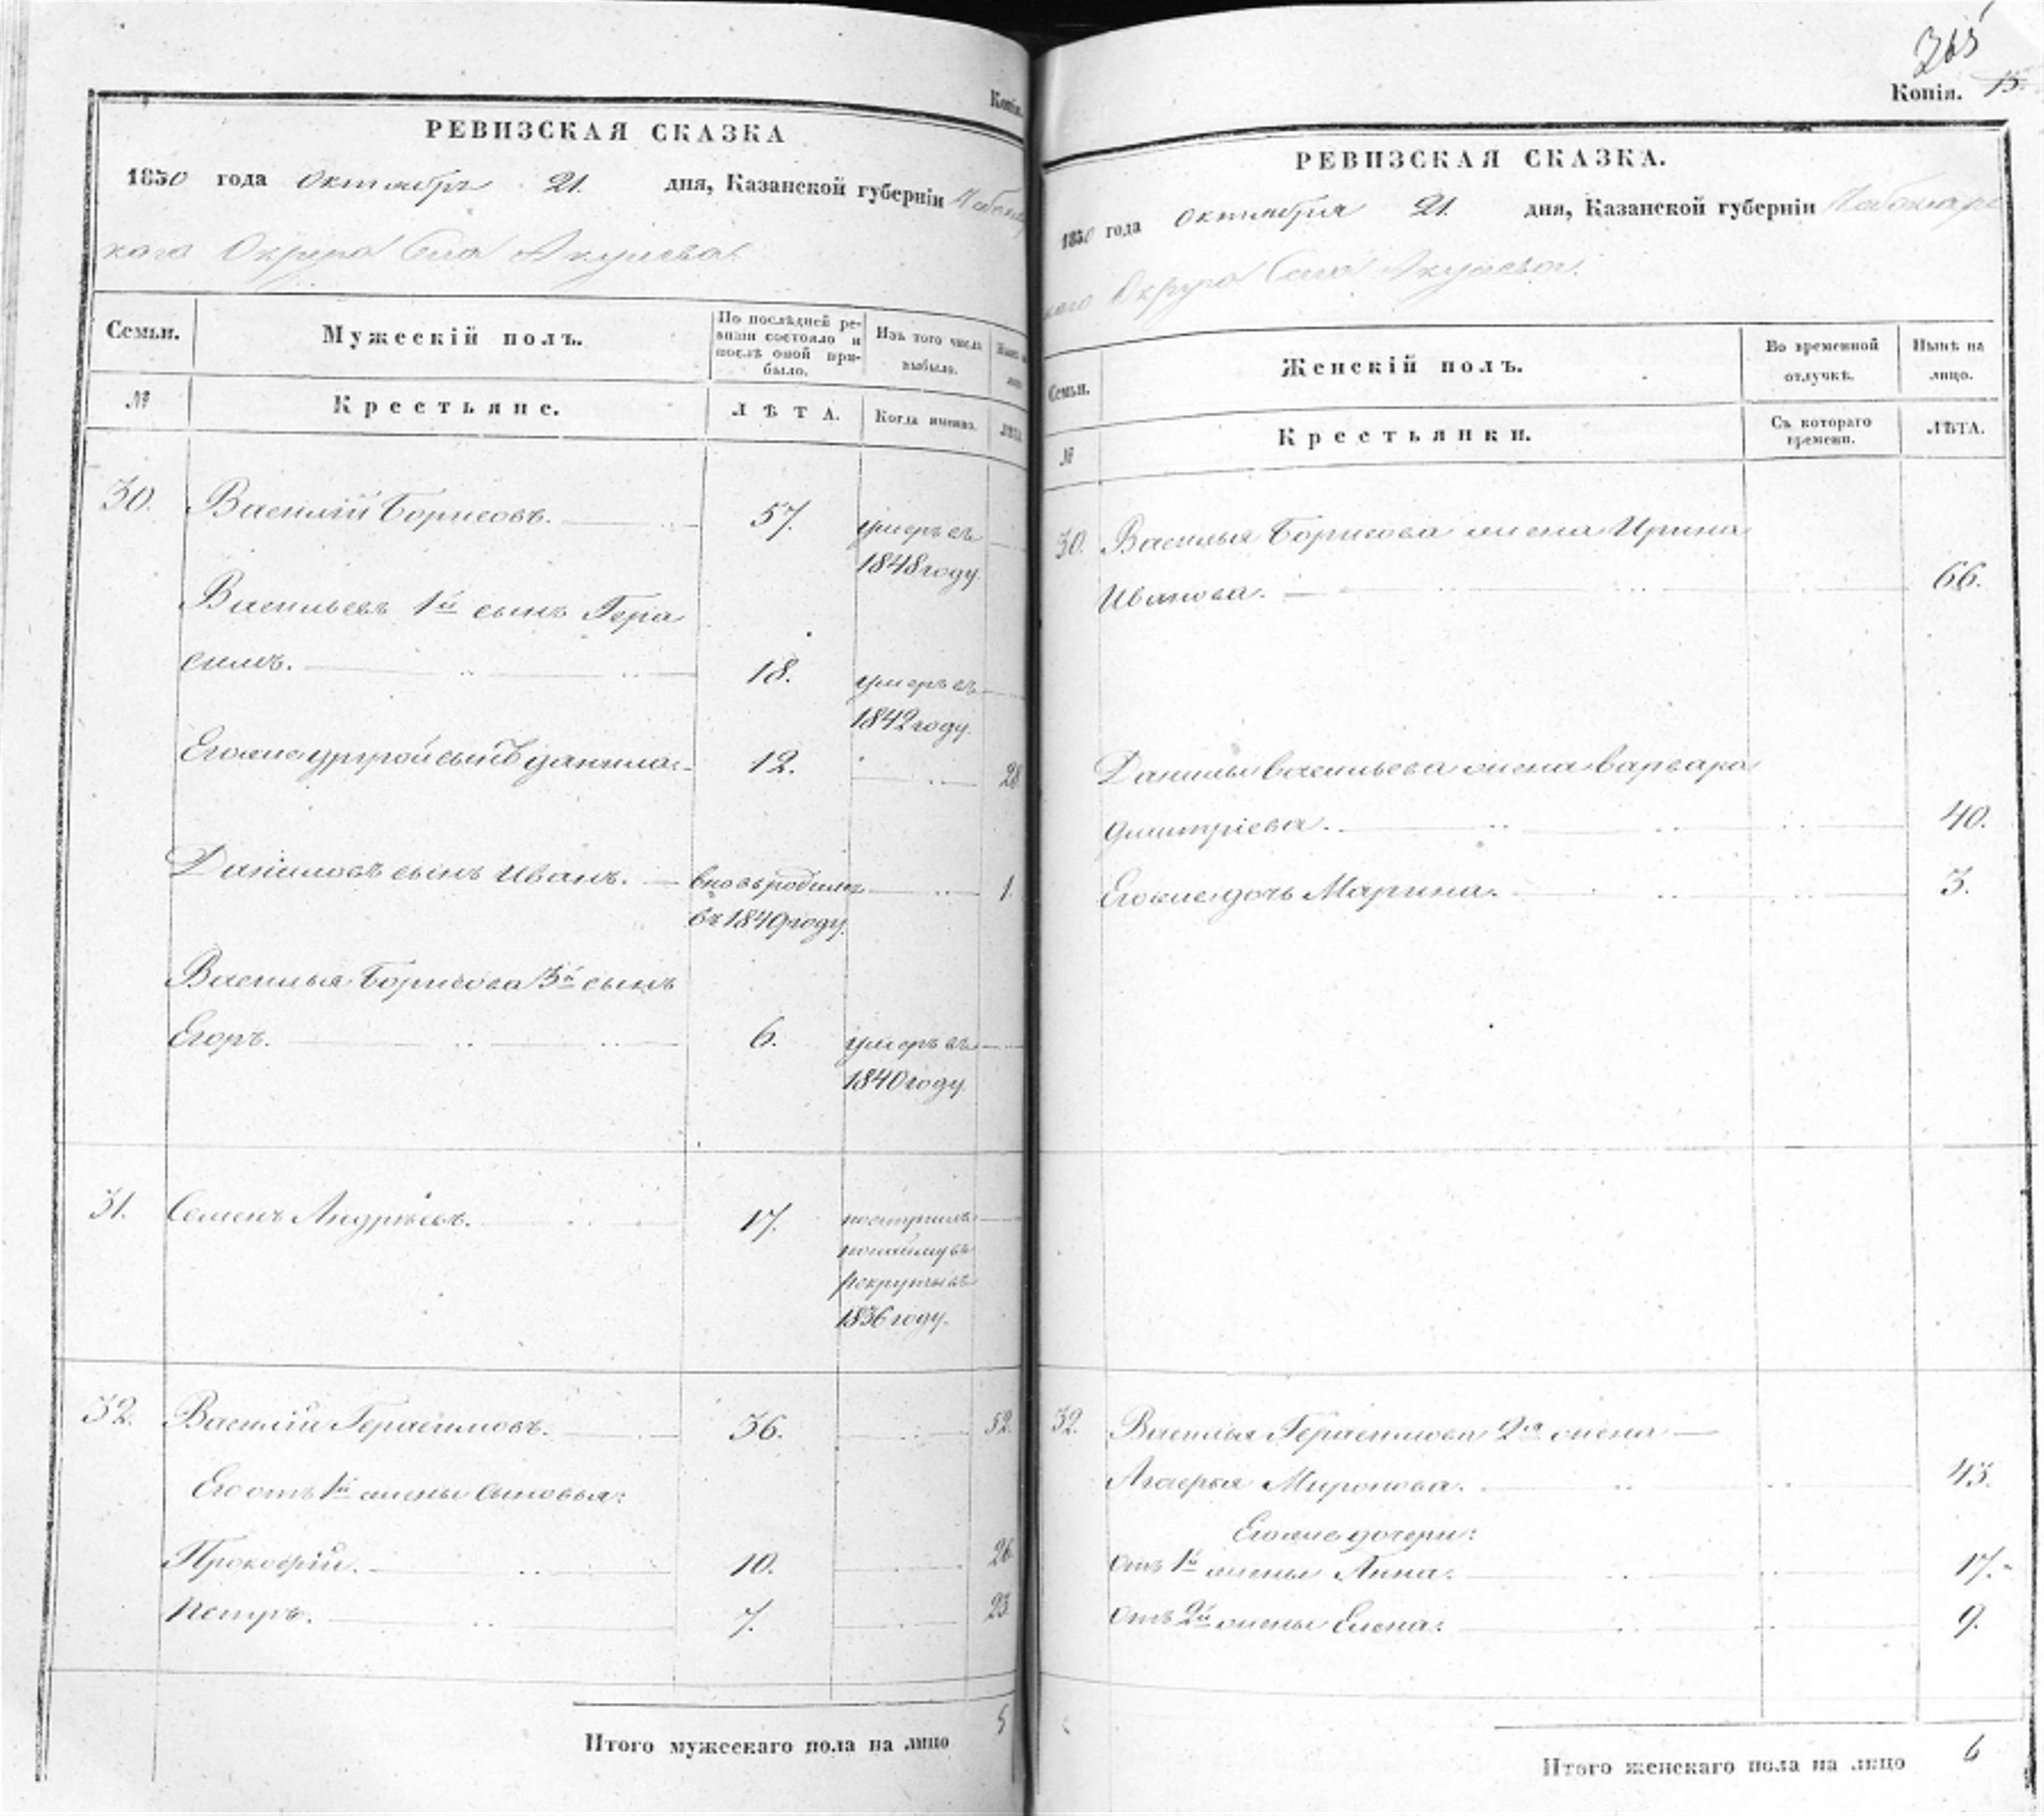 Копія.
РЕВИЗСКАЯ СКАЗКА
1850 года Октября 21. дня, Казанской губерніи Чебоксар
скаго Округа Села Акулева.
Семьи.
Мужескій полъ.
По послѣдней ре-
визіи состояло и
послѣ оной при-
было.
Изъ того числа
выбыло.
№
Крестьяне.
ЛѢТА.
Когда именно.
ЛѢТА.
30. Василій Борисовъ. 57. умеръ въ
1848 году.
Васильевъ 1й сынъ Гера
симъ. 18. умеръ въ
1842 году.
Его же другой сынъ Данила. 12. 28
Даниловъ сынъ Иванъ. вновь родился 1.
въ 1849 году.
Василья Борисова 3й сынъ
Егоръ. 6. умеръ въ
1840 году.
31. Семенъ Андреевъ. 17. поступилъ
по найму въ
рекруты въ
1836 году.
32. Василій Герасимовъ. 36. 52.
Его отъ 1й жены сыновья:
Прокофій. 10. 26
Петръ. 7. 23
Итого мужескаго пола на лицо 5
265
Копія. 15.
РЕВИЗСКАЯ СКАЗКА.
1850 года Октября 21. дня, Казанской губерніи Чебоксарс
каго Округа Села Акулева.
Семьи.
Женскій полъ.
Во временной
отлучкѣ.
Нынѣ на
лицо.
№
Крестьянки.
Съ котораго
времени.
ЛѢТА.
30. Василья Борисова жена Ирина
Иванова. 66.
Данилы Васильева жена Варвара
Дмитріева. 40.
Его же дочь Марина. 3.
32. Василья Герасимова 2я жена
Агафья Миронова. 43.
Его же дочери:
Отъ 1й жены Анна. 17.
Отъ 2й жены Елена: 9.
Итого женскаго пола на лицо 6